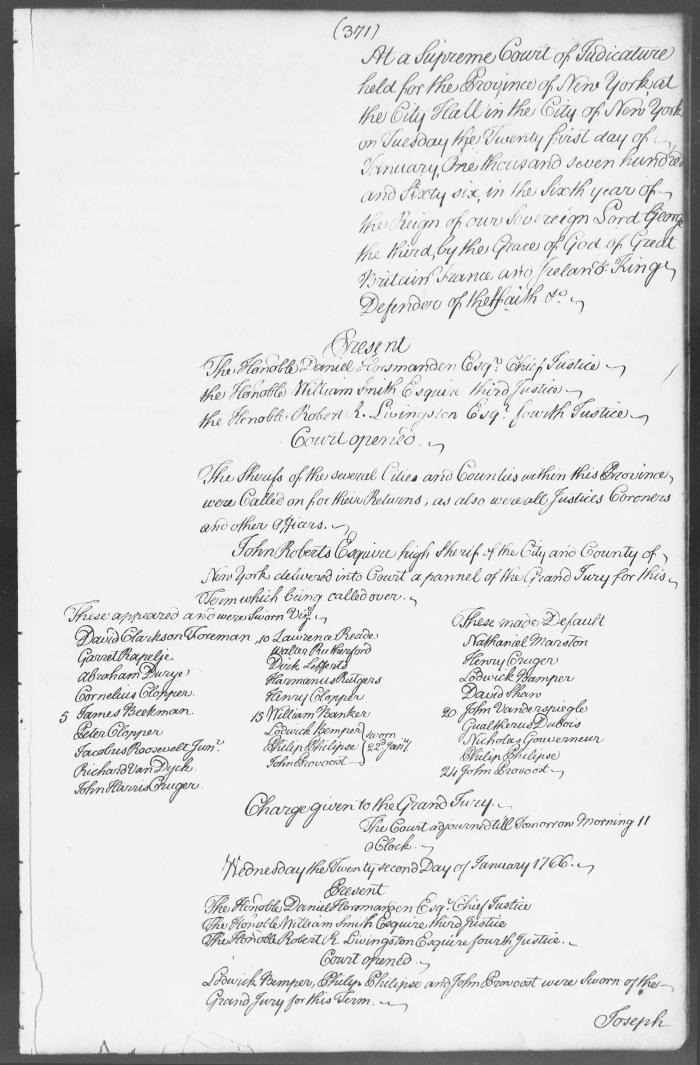 (371)
At a Supreme Court of Judicature
held for the Province of New York, at
the City Hall in the City of New York
on Tuesday the Twenty first day of
January, One thousand seven hundred
and Sixty six, in the Sixth year of
the Reign of our Sovereign Lord George
the third, by the Grace of God of Great
Britain France and Ireland King
Defender of the Faith &c.
Present
The Honoble Daniel Horsmanden Esqr. Chief Justice
the Honoble William Smith Esquire third Justice
the Honoble Robert R. Livingston Esqr. fourth Justice
Court opened.
The Sherifs of the several Cities and Counties within this Province
were Called on for their Returns, as also were all Justices Coroners
and other officers.
John Roberts Esquire high Sherif of the City and County of
New York delivered into Court a pannel of the Grand Jury for this
Term which being called over.
These appeared and were Sworn Vizt.
David Clarkson Foreman
Garret Rapelje
Abraham Durye
Cornelius Clopper
5 James Beekman
Peter Clopper
Jacobus Roosevelt Junr.
Richard Van Dyck
John Harris Cruger
10 Lawrence Reade
Walter Rutherford
Dirk Lefferts
Harmanus Rutgers
Henry Clopper
15 William Banker
Lodwick Bemper
Philip Philipse
John Provoost
Sworn
22d. Jany.
These made Default
Nathaniel Marston
Henry Cruger
Lodwick Bamper
David Shaw
20 John Vanderspiegle
Gualtherus Dubois
Nicholas Gouverneur
Philip Philipse
24 John Provoost
Charge given to the Grand Jury.
The Court adjourned till Tomorrow Morning 11
o Clock.
Wednesday the Twenty second Day of January 1766.
Present
The Honoble Daniel Horsmanden Esqr. Chief Justice
The Honoble William Smith Esquire third Justice
The Honoble Robert R. Livingston Esquire fourth Justice.
Court opened
Lodwick Bemper, Philip Philipse and John Provoost were Sworn of the
Grand Jury for this Term.
Joseph